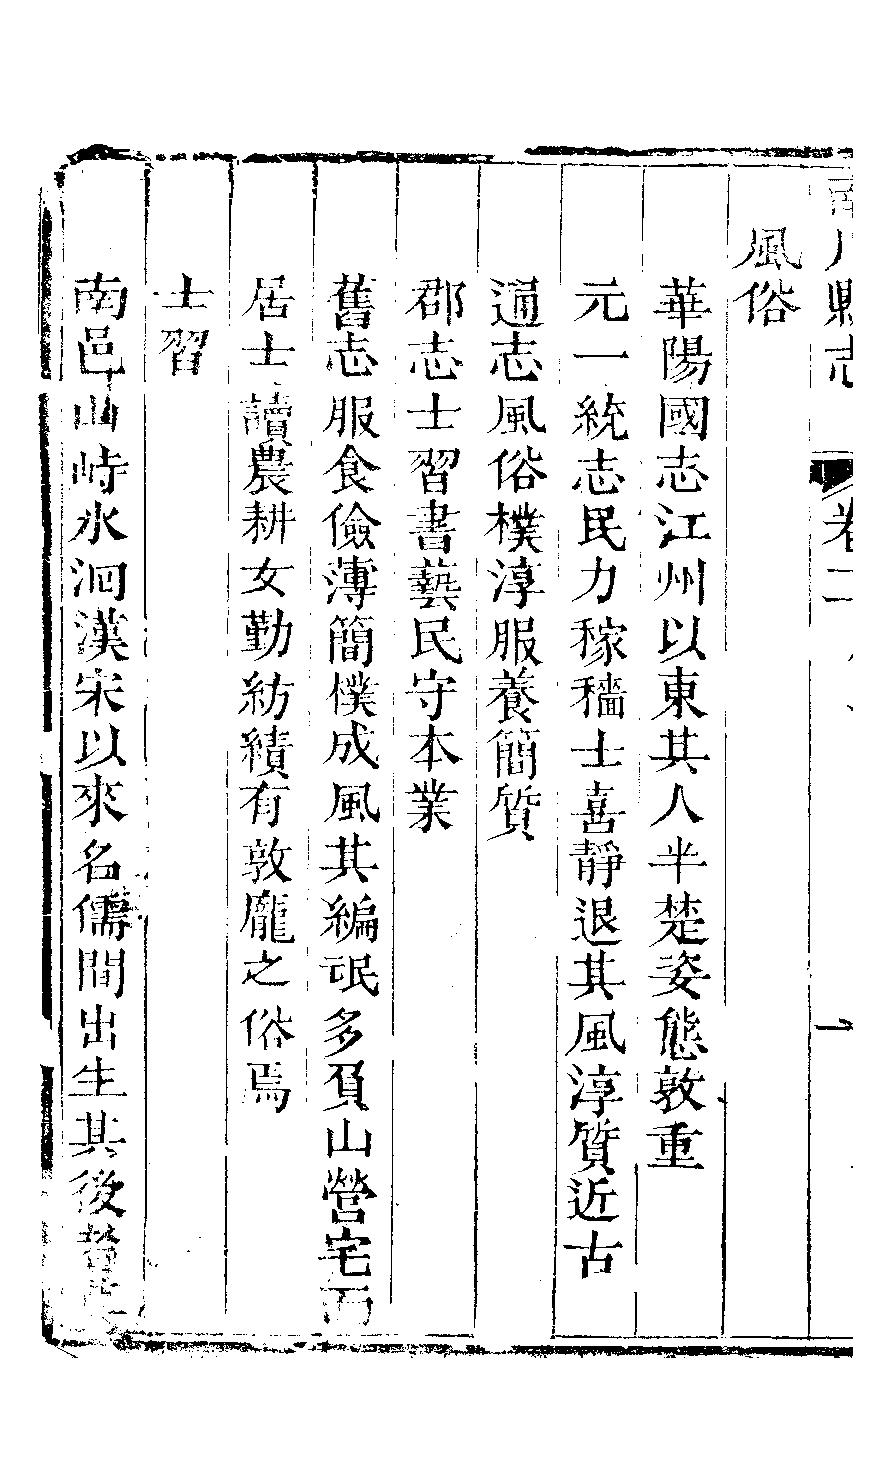 南川縣志 卷二 一
風俗
華陽國志江州以東其人半楚姿態敦重
元一統志民力稼穡士喜靜退其風淳質近古
通志風俗樸淳服養簡質
郡志士習書藝民守本業
舊志服食儉薄簡樸成風其編氓多負山營宅而
居士讀農耕女勤紡績有敦龐之俗焉
士習
南邑山峙水洄漢宋以來名儒間出生其後